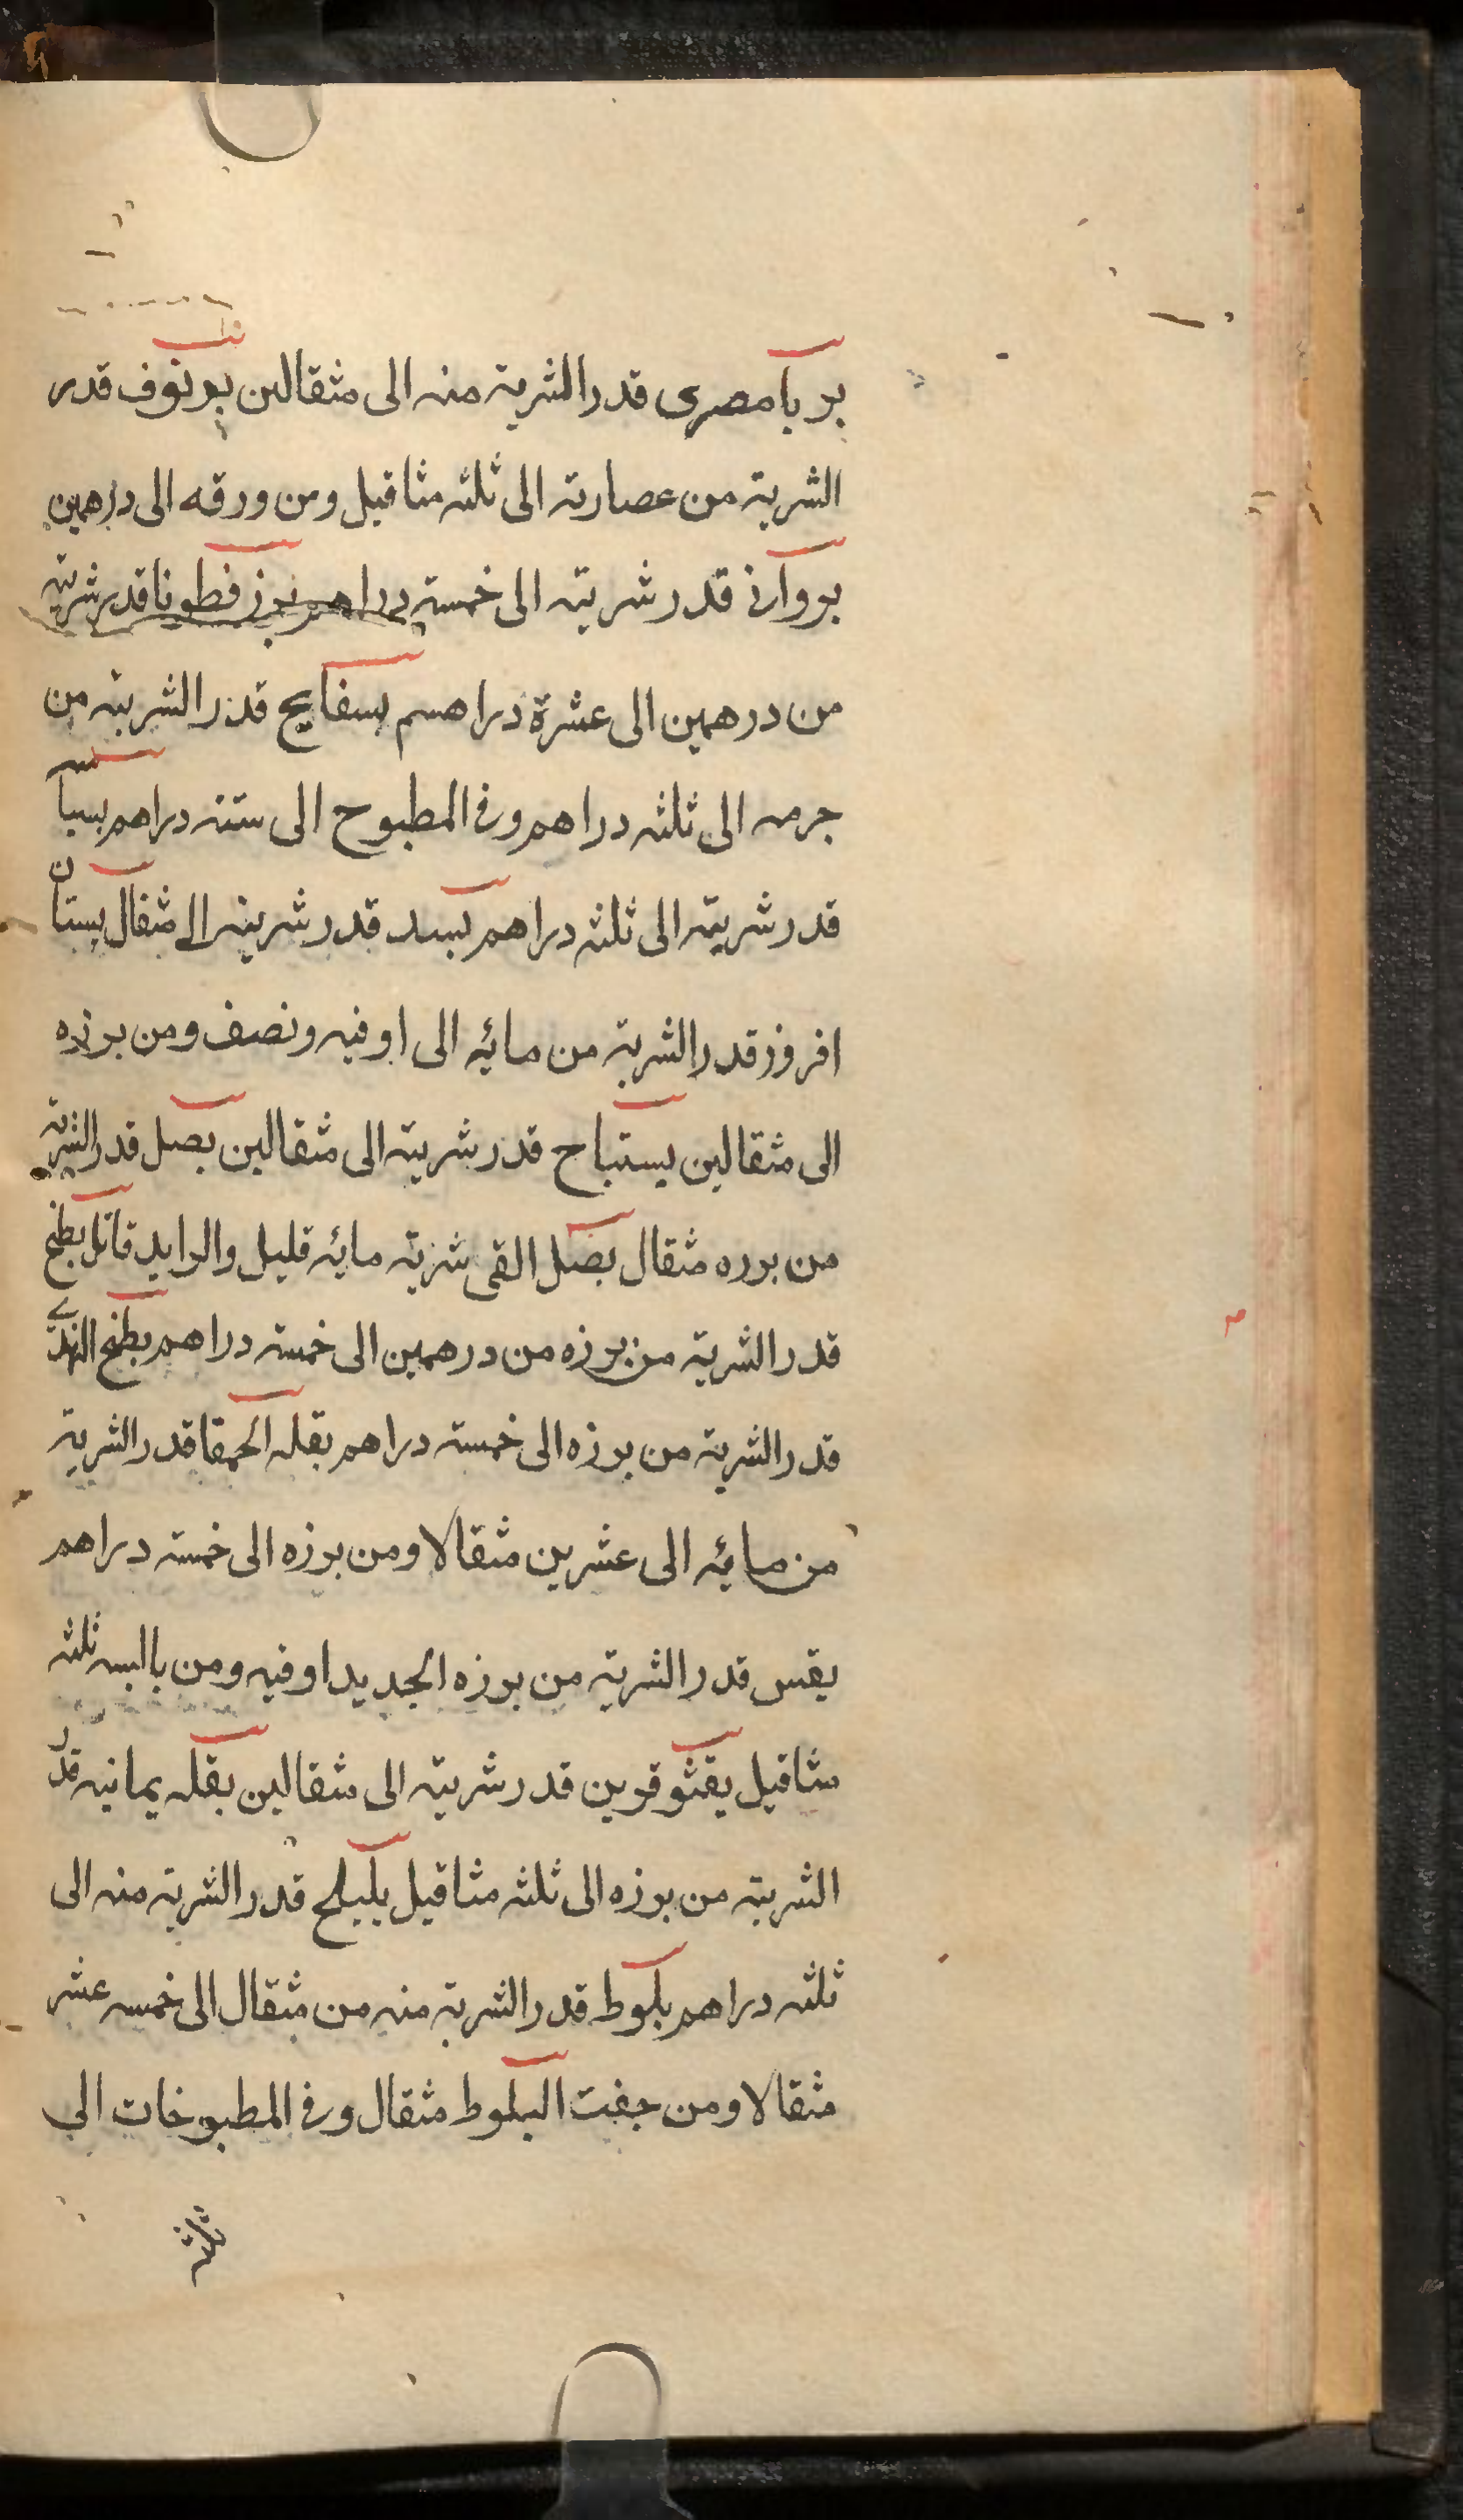 بربا مصرى قدر الشربة منه الى مثقالين برنوف قدر
الشربة من عصارته الى ثلثه مثاقيل ومن ورقه الى درهمين
بروانى قدر شربته الى خمسة دراهم بزر قطونا قدر شربته
من درهمين الى عشرة دراهم بسفايج قدر الشربة من
جرمه الى ثلثه دراهم وفى المطبوح الى ستة دراهم بسبا
قدر شربته الى ثلثه دراهم بسد قدر شربته الى مثقال بستان
افروز قدر الشربة من مائه الى اوقيه ونصف ومن بزره
الى مثقالين بستباح قدر شربته الى مثقالين بصل قدر الشربة
من بزره مثقال بصل القى شربة مائه قليل والزايد قاتل بطيخ
قدر الشربة من بزره من درهمين الى خمسة دراهم بطيخ الهندى
قدر الشربة من بزره الى خمسة دراهم بقله الحمقا قدر الشربة
من مائه الى عشرين مثقالا ومن بزره الى خمسة دراهم
بقس قدر الشربة من بزره الجديد اوقيه ومن يابسه ثلثه
مثاقيل بقثوقرين قدر شربته الى مثقالين بقله يمانيه قدر
الشربة من بزره الى ثلثه مثاقيل بليلج قدر الشربة منه الى
ثلثه دراهم بلوط قدر الشربة منه من مثقال الى خمسه عشر
مثقالا ومن جفت البلوط مثقال وفى المطبوخات الى
ثلثة